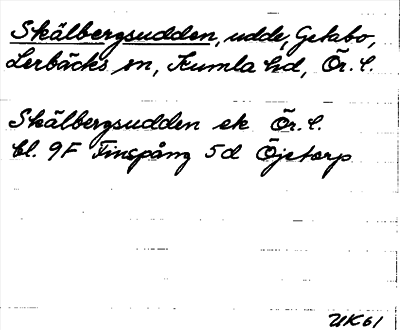 Skälbergsudden, udde, Getabo,
Lerbäcks sn, Kumla hd, Ör. l.
Skälbergsudden ek Ör. l.
bl. 9F Finspång 5d Öjetorp
UK61